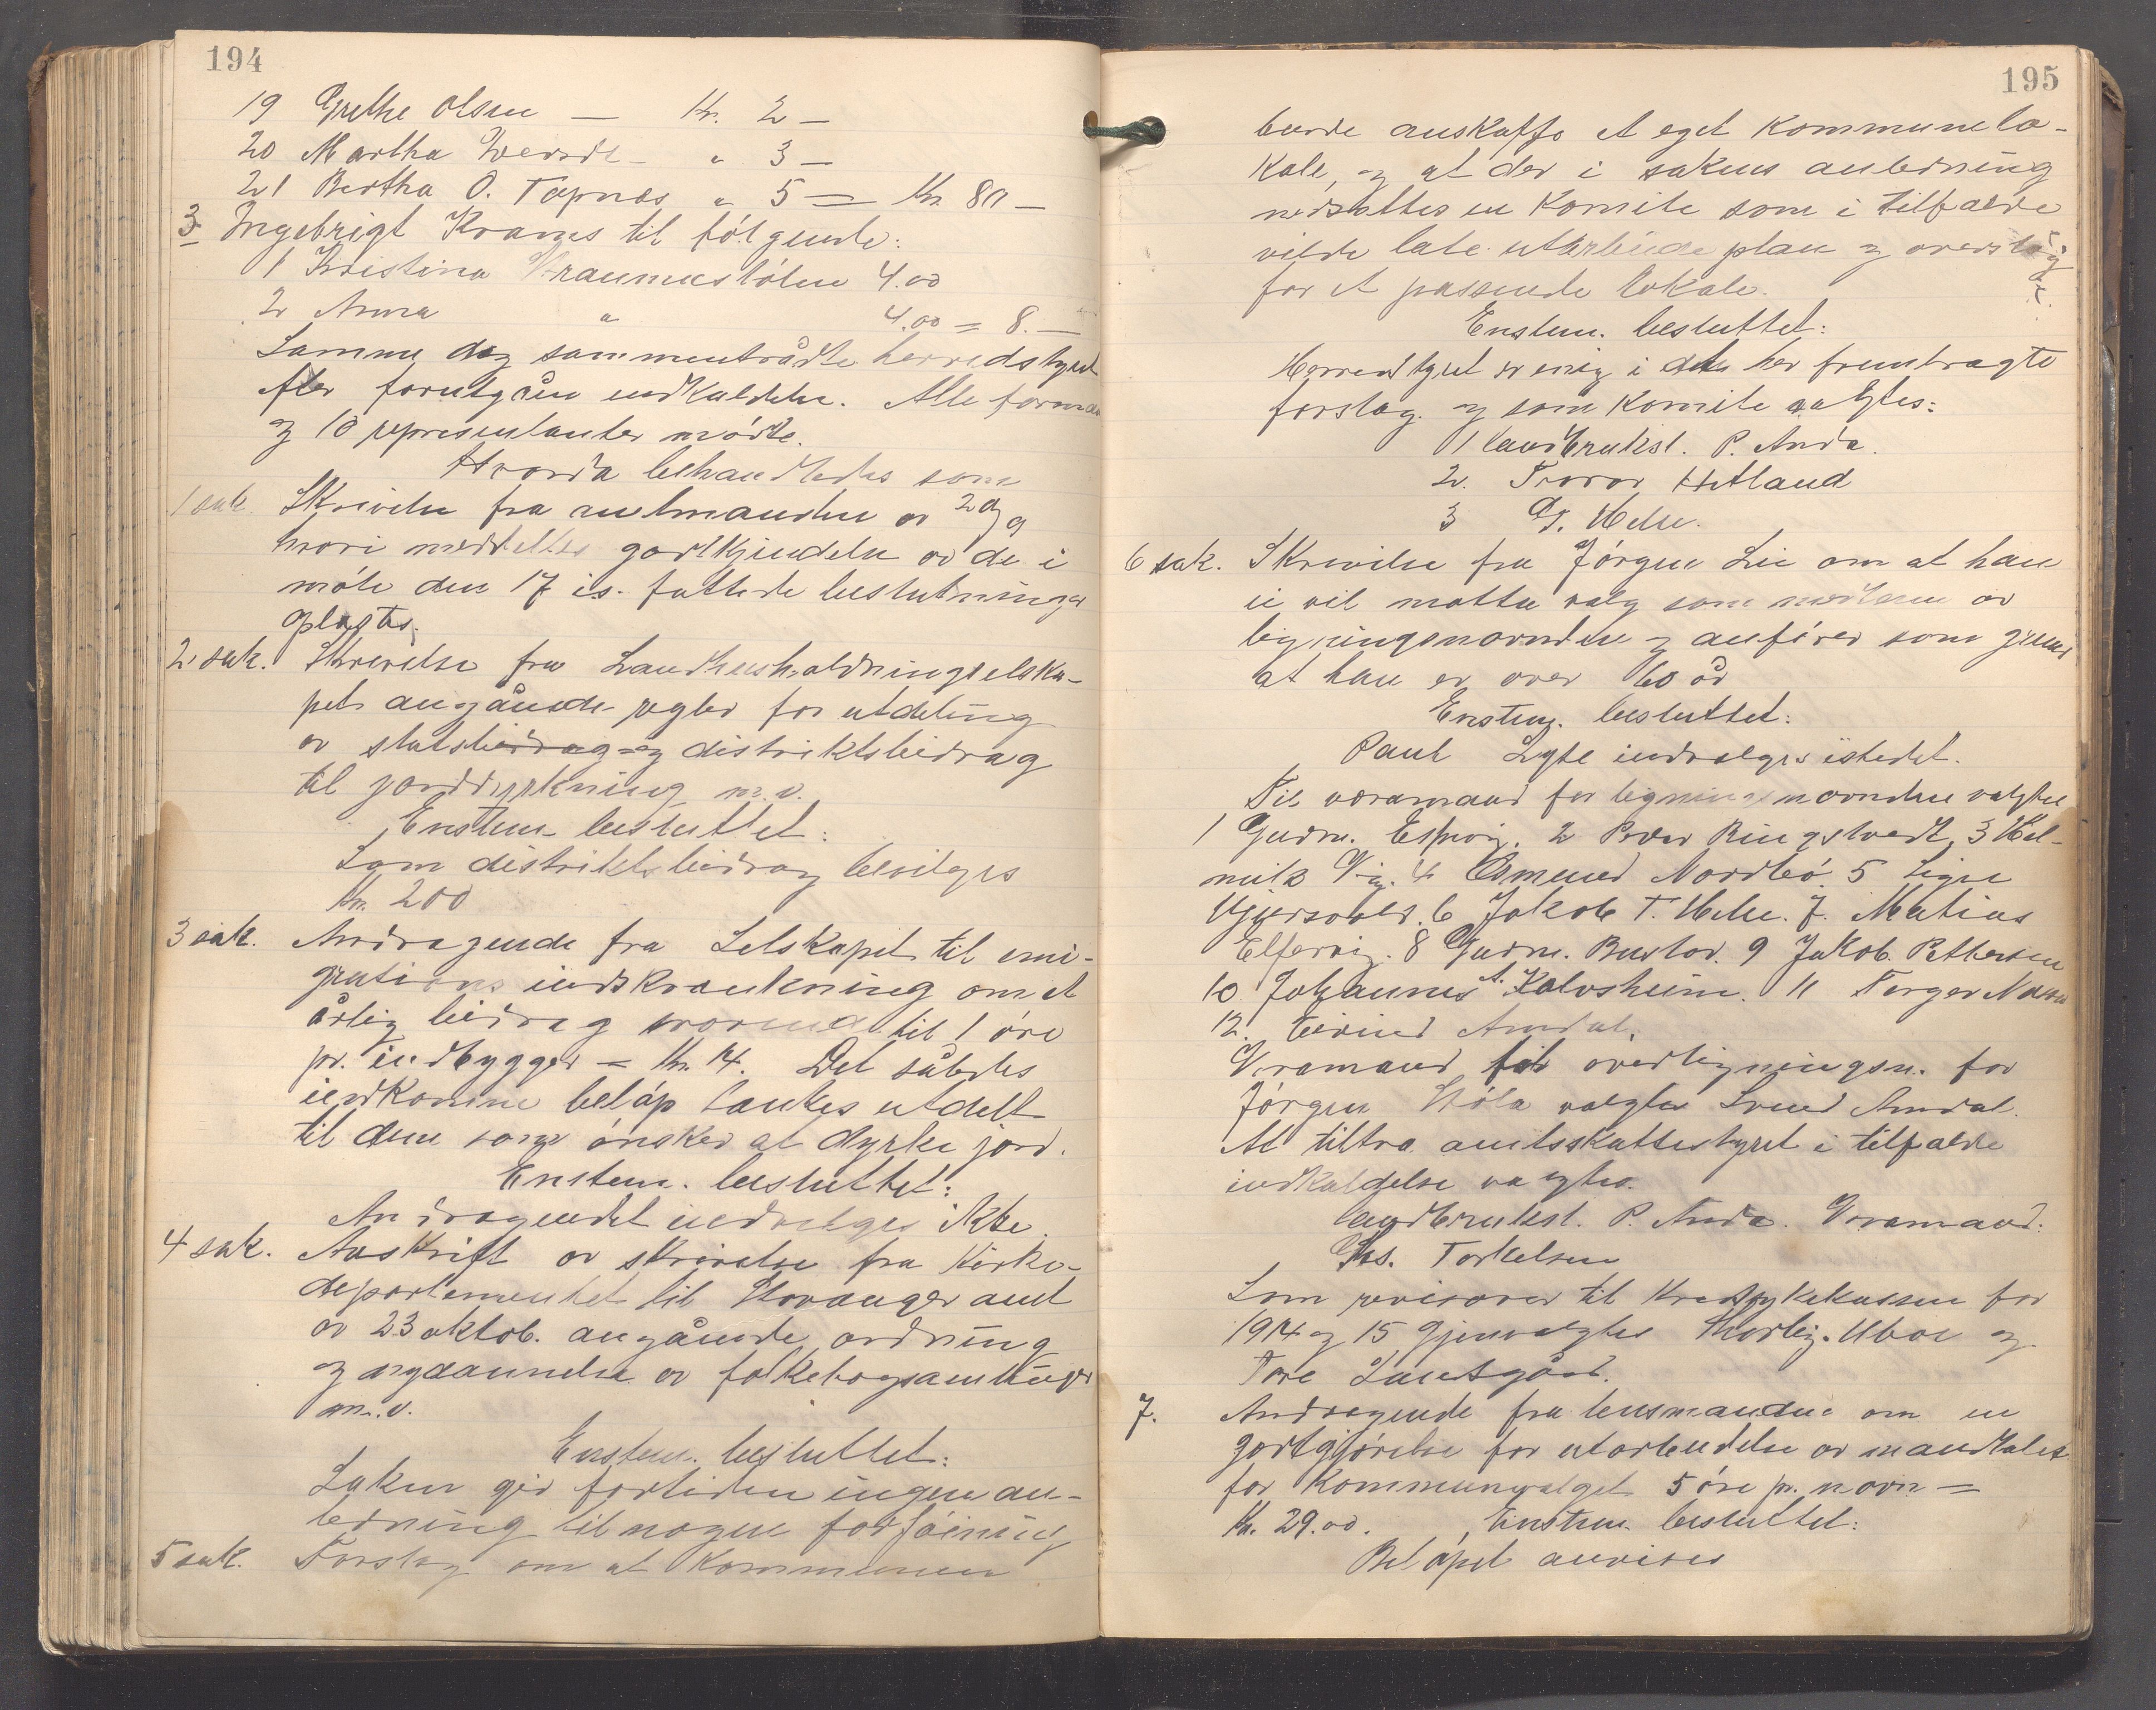 194
19 Grethe Olsen — Kr. 2 —
20 Martha — " 3 —
21 Bertha O. Tapnes " 5 = Kr 80 —
3 Ingebrigt Krams til følgende:
1 Kristina 4.00
2 Anna " 4.00 = 8.—
Samme dag sammentrådte herredstyret
efter forutgåen indkaldelse. Alle formænd
og 10 representanter mødte.
Hvorda behandledes som
1 sak. Skrivelse fra amtmanden av 29/9
hvori meddeltes godkjendelse av de i
møte den 17 is. fattede beslutninger
Oplæstes.
2 sak. Skrivelse fra Landhusholdningselska-
pet angående regler for utdeling
av statsbidrag og distriktsbidrag
til jorddyrkning m.v.
Enstem besluttet:
Som distriktsbidrag bevilges
Kr. 200
3 sak. Andragende fra Selskapet til emi-
grationens indskrænkning om et
årlig bidrag svarende til 1 øre
pr. indbygger = Kr. 14. Det således
indkomne beløp tænkes utdelt
til dem som ønsker at dyrke jord.
Enstem. besluttet:
Andragendet indvilges ikke.
4 sak. Avskrift av skrivelse fra Kirke-
departementet til Stavanger amt
av 23 oktob. angående ordning
og nydannelse av folkebogsamlinger
m.v.
Enstem. besluttet:
Saken gir fortiden ingen an-
ledning til nogen forføining
5 sak. Forslag om at Kommunen
195
burde anskaffe et eget Kommunelo-
kale, og at der i sakens anledning
nedsættes en Komite som i tilfælde
vilde late utarbeide plan og overslag
for et passende lokale.
Enstem. besluttet:
Herredstyret er enig i det her frembragte
forslag og som Komite valgtes:
1 landbrukst. P. Anda.
2. Tror Hetland
3 G. Helle.
6 sak. Skrivelse fra Jørgen Lie om at han
ei vil motta valg som medlem av
ligningsnævnden og anfører som grund
at han er over 60 år
Enstem. besluttet:
Paul Lyte indvælges istedet.
Til varamænd for ligningsnævnden valgtes
1 Gudm. Espevig. 2 Peder Ringstvedt, 3 Hel-
mik Vig. 4 Edmund Nordbø 5 Sigve
6 Jakob T. Helle. 7. Matias
Elfervig. 8 Gudm. 9 Jakob Pettersen
10 Johannes A. Kalvsheim. 11 Torger
12. Eivind Amdal.
Varamand for overligningsn. for
Jørgen Høla valgtes Svend Amdal.
At tiltra amtsskattestyret i tilfælde
indkaldelse valgtes
landbrukst. P. Anda. Varamand:
Torkelsen
Som revisorer til Kredsykekassen for
1914 og 15 Gjenvalgtes Thorleif Uboe og
Tore Lundsgård.
7. Andragende fra lensmanden om en
godtgjørelse for utarbeidelse av mandtallet
for Kommunevalget 5 øre pr. navn =
Kr. 29.00. Enstem besluttet:
Beløpet anvises